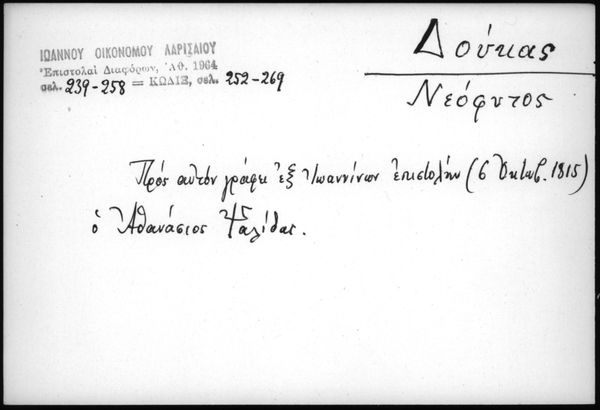 ΙΩΑΝΝΟΥ ΟΙΚΟΝΟΜΟΥ ΛΑΡΙΣΑΙΟΥ
Ἐπιστολαὶ Διαφόρων, Ἀθ. 1964
σελ. 239-258 = ΚΩΔΙΞ, σελ. 252-269
Δούκας
Νεόφυτος
Πρός αὐτόν γράφει ἐξ Ἰωαννίνων ἐπιστολήν (6 Ὀκτωβ. 1815)
ὁ Ἀθανάσιος Ψαλίδας.